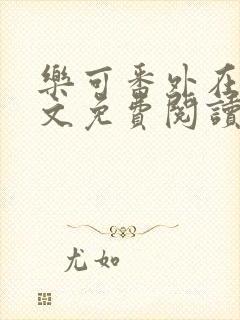 樂可番外在
文免費閱讀
尤如